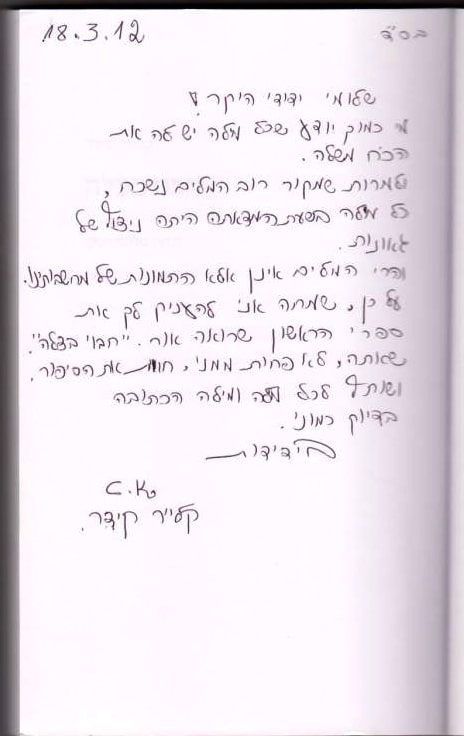 בס"ד
18.3.12
שלומי ידידי היקר!
מי כמוך יודע שכל מילה יש לה את
הכח משלה.
ולמרות שמקור רוב המלים נשכח,
כל מילה בשעת המצאתה היתה ניצול של
גאונות.
והרי המלים אינן אלא התמונות של מחשבותינו.
על כן, שמחה אני להעניק לך את
ספרי הראשון שרואה אור. "חבוי בצלה".
שאתה, לא פחות ממני, את הסיפור.
ושותף לכל ומילה הכתובה
בדיוק כמוני.
בידידות
C.K
קלייר קידר.